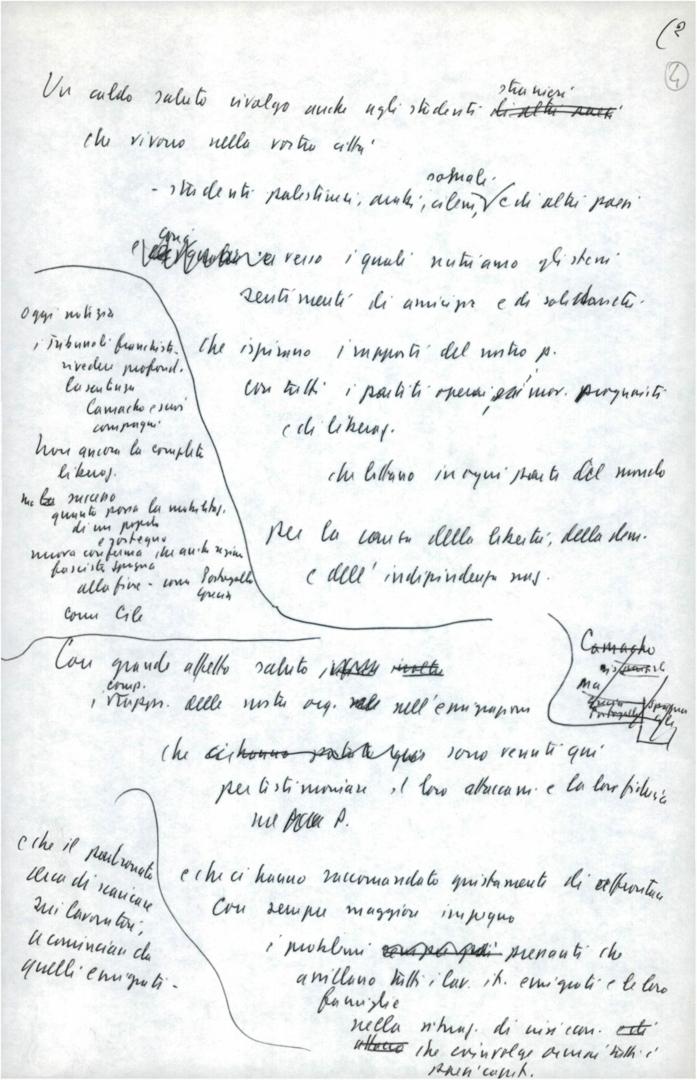 (2
4
Un caldo saluto rivolgo anche agli studenti stranieri di altri paesi
che vivono nella vostra città
- studenti palestinesi, arabi, cileni, somali e di altri paesi
verso i quali nutriamo gli stessi
sentimenti di amicizia e di solidarietà
che ispirano i rapporti del nostro p.
con tutti i partiti operai, mov. progressisti
e di liberaz.
che lottano in ogni parte del mondo
per la causa della libertà, della dem.
e dell'indipendenza naz.
Oggi notizia
i tribunali franchisti
rivedere profond.
la sentenza
Camacho e suoi
compagni
Non ancora la completa
liberaz.
ma successo
quanto possa la mobilitaz.
di un popolo
e sostegno
nuova conferma che anche regime
fascista Spagna
alla fine - come Portogallo
Grecia
come Cile
Camacho
ma
Grecia
Portogallo
Spagna
Cile
Con grande affetto saluto
i comp. rappr. delle nostre org. nell'emigrazione
che sono venuti qui
per testimoniare il loro attaccam. e la loro fiducia
nel P.
e che ci hanno raccomandato giustamente di affrontare
con sempre maggiore impegno
i problemi pressanti che
assillano tutti i lav. it. emigrati e le loro
famiglie
nella situaz. di crisi econ.
che coinvolge ormai tutti i
paesi capit.
e che il padronato
cerca di scaricare
sui lavoratori,
a cominciare da
quelli emigrati -